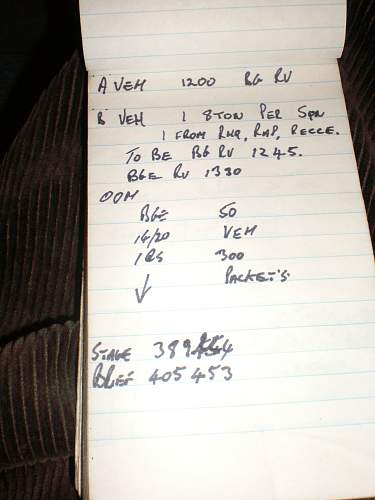 A VEH 1200 BG RV
B VEH 1 8TON PER SQN
1 FROM RHQ, RMP, RECCE.
TO BE BG RV 1245.
BGE RV 1330
OOM
BGE 50
14/20 VEH
1RS 300
PACKETS
STAGE 389
BREF 405 453